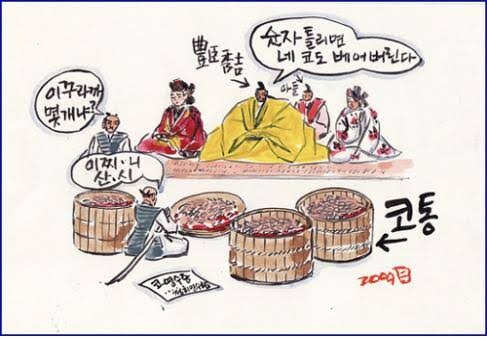 숫자 틀리면
네 코도 베어버린다
豊臣秀吉
아들
이꾸라까
몇개냐?
이찌·니
산·시
코통
코영수증
2009